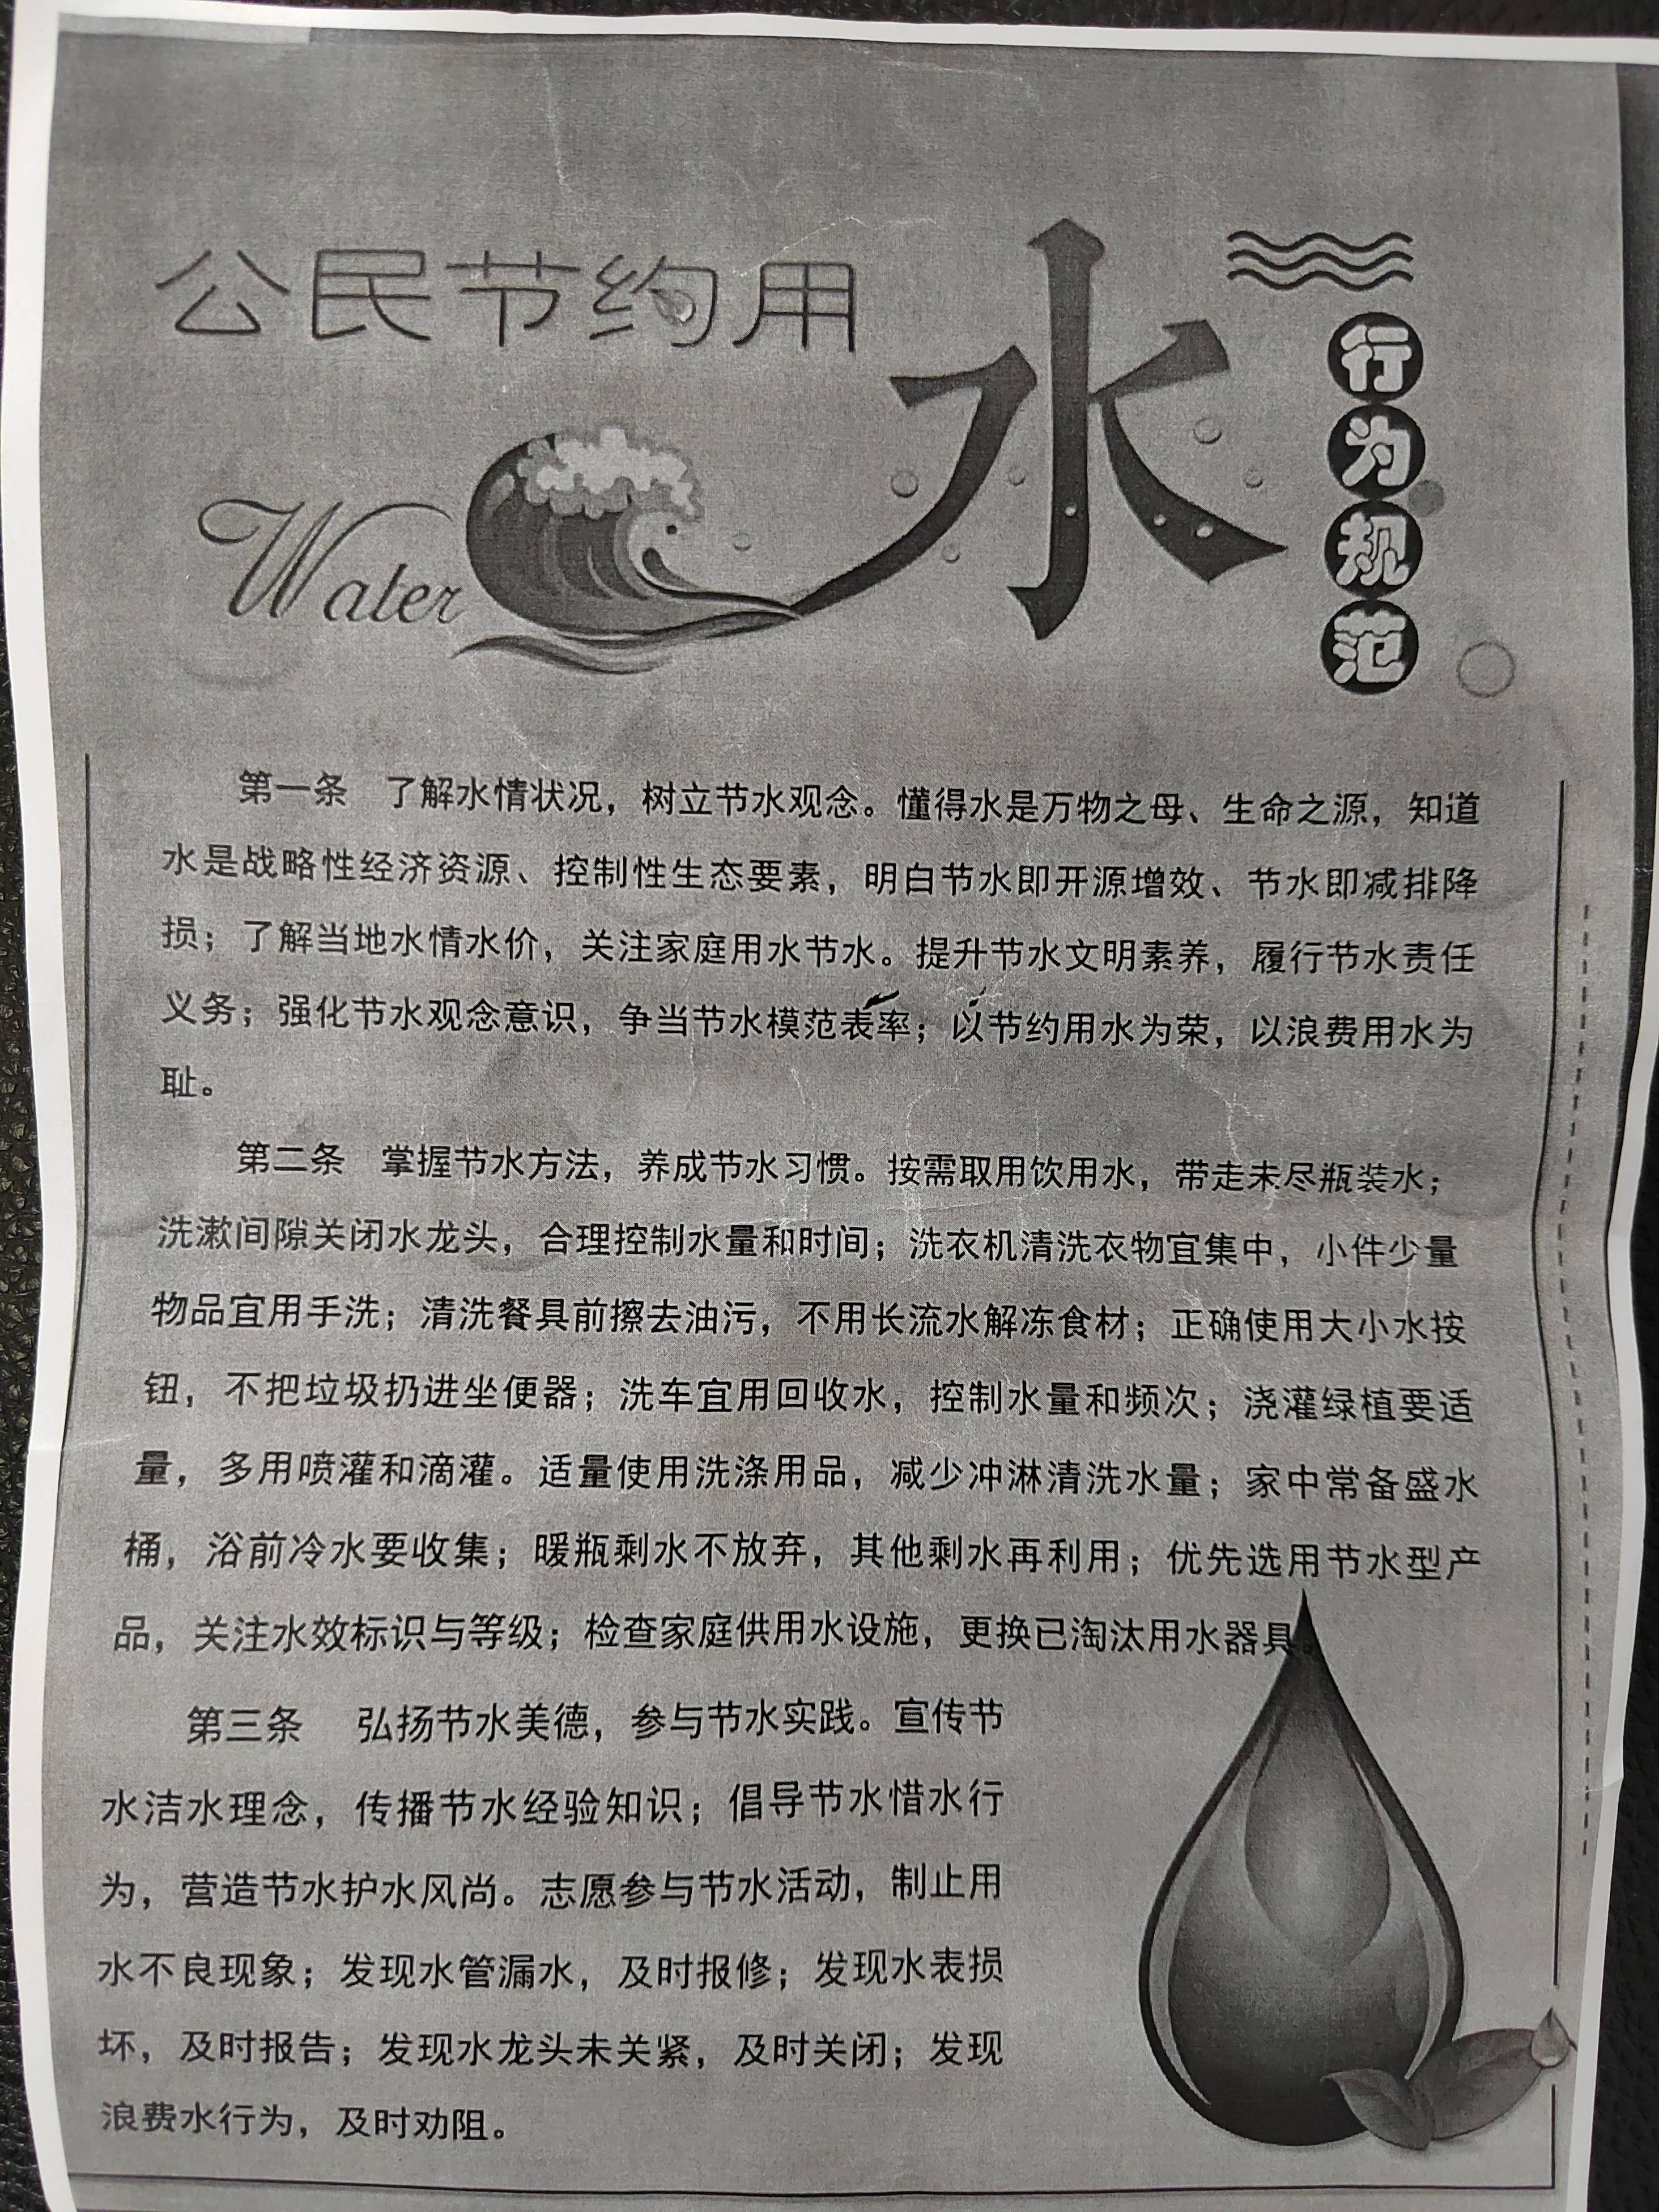 公民节约用水
行为规范
Water
第一条 了解水情状况，树立节水观念。懂得水是万物之母、生命之源，知道
水是战略性经济资源、控制性生态要素，明白节水即开源增效、节水即减排降
损；了解当地水情水价，关注家庭用水节水。提升节水文明素养，履行节水责任
义务；强化节水观念意识，争当节水模范表率；以节约用水为荣，以浪费用水为
耻。
第二条 掌握节水方法，养成节水习惯。按需取用饮用水，带走未尽瓶装水；
洗漱间隙关闭水龙头，合理控制水量和时间；洗衣机清洗衣物宜集中，小件少量
物品宜用手洗；清洗餐具前擦去油污，不用长流水解冻食材；正确使用大小水按
钮，不把垃圾扔进坐便器；洗车宜用回收水，控制水量和频次；浇灌绿植要适
量，多用喷灌和滴灌。适量使用洗涤用品，减少冲淋清洗水量；家中常备盛水
桶，浴前冷水要收集；暖瓶剩水不放弃，其他剩水再利用；优先选用节水型产
品，关注水效标识与等级；检查家庭供用水设施，更换已淘汰用水器具。
第三条 弘扬节水美德，参与节水实践。宣传节
水洁水理念，传播节水经验知识；倡导节水惜水行
为，营造节水护水风尚。志愿参与节水活动，制止用
水不良现象；发现水管漏水，及时报修；发现水表损
坏，及时报告；发现水龙头未关紧，及时关闭；发现
浪费水行为，及时劝阻。